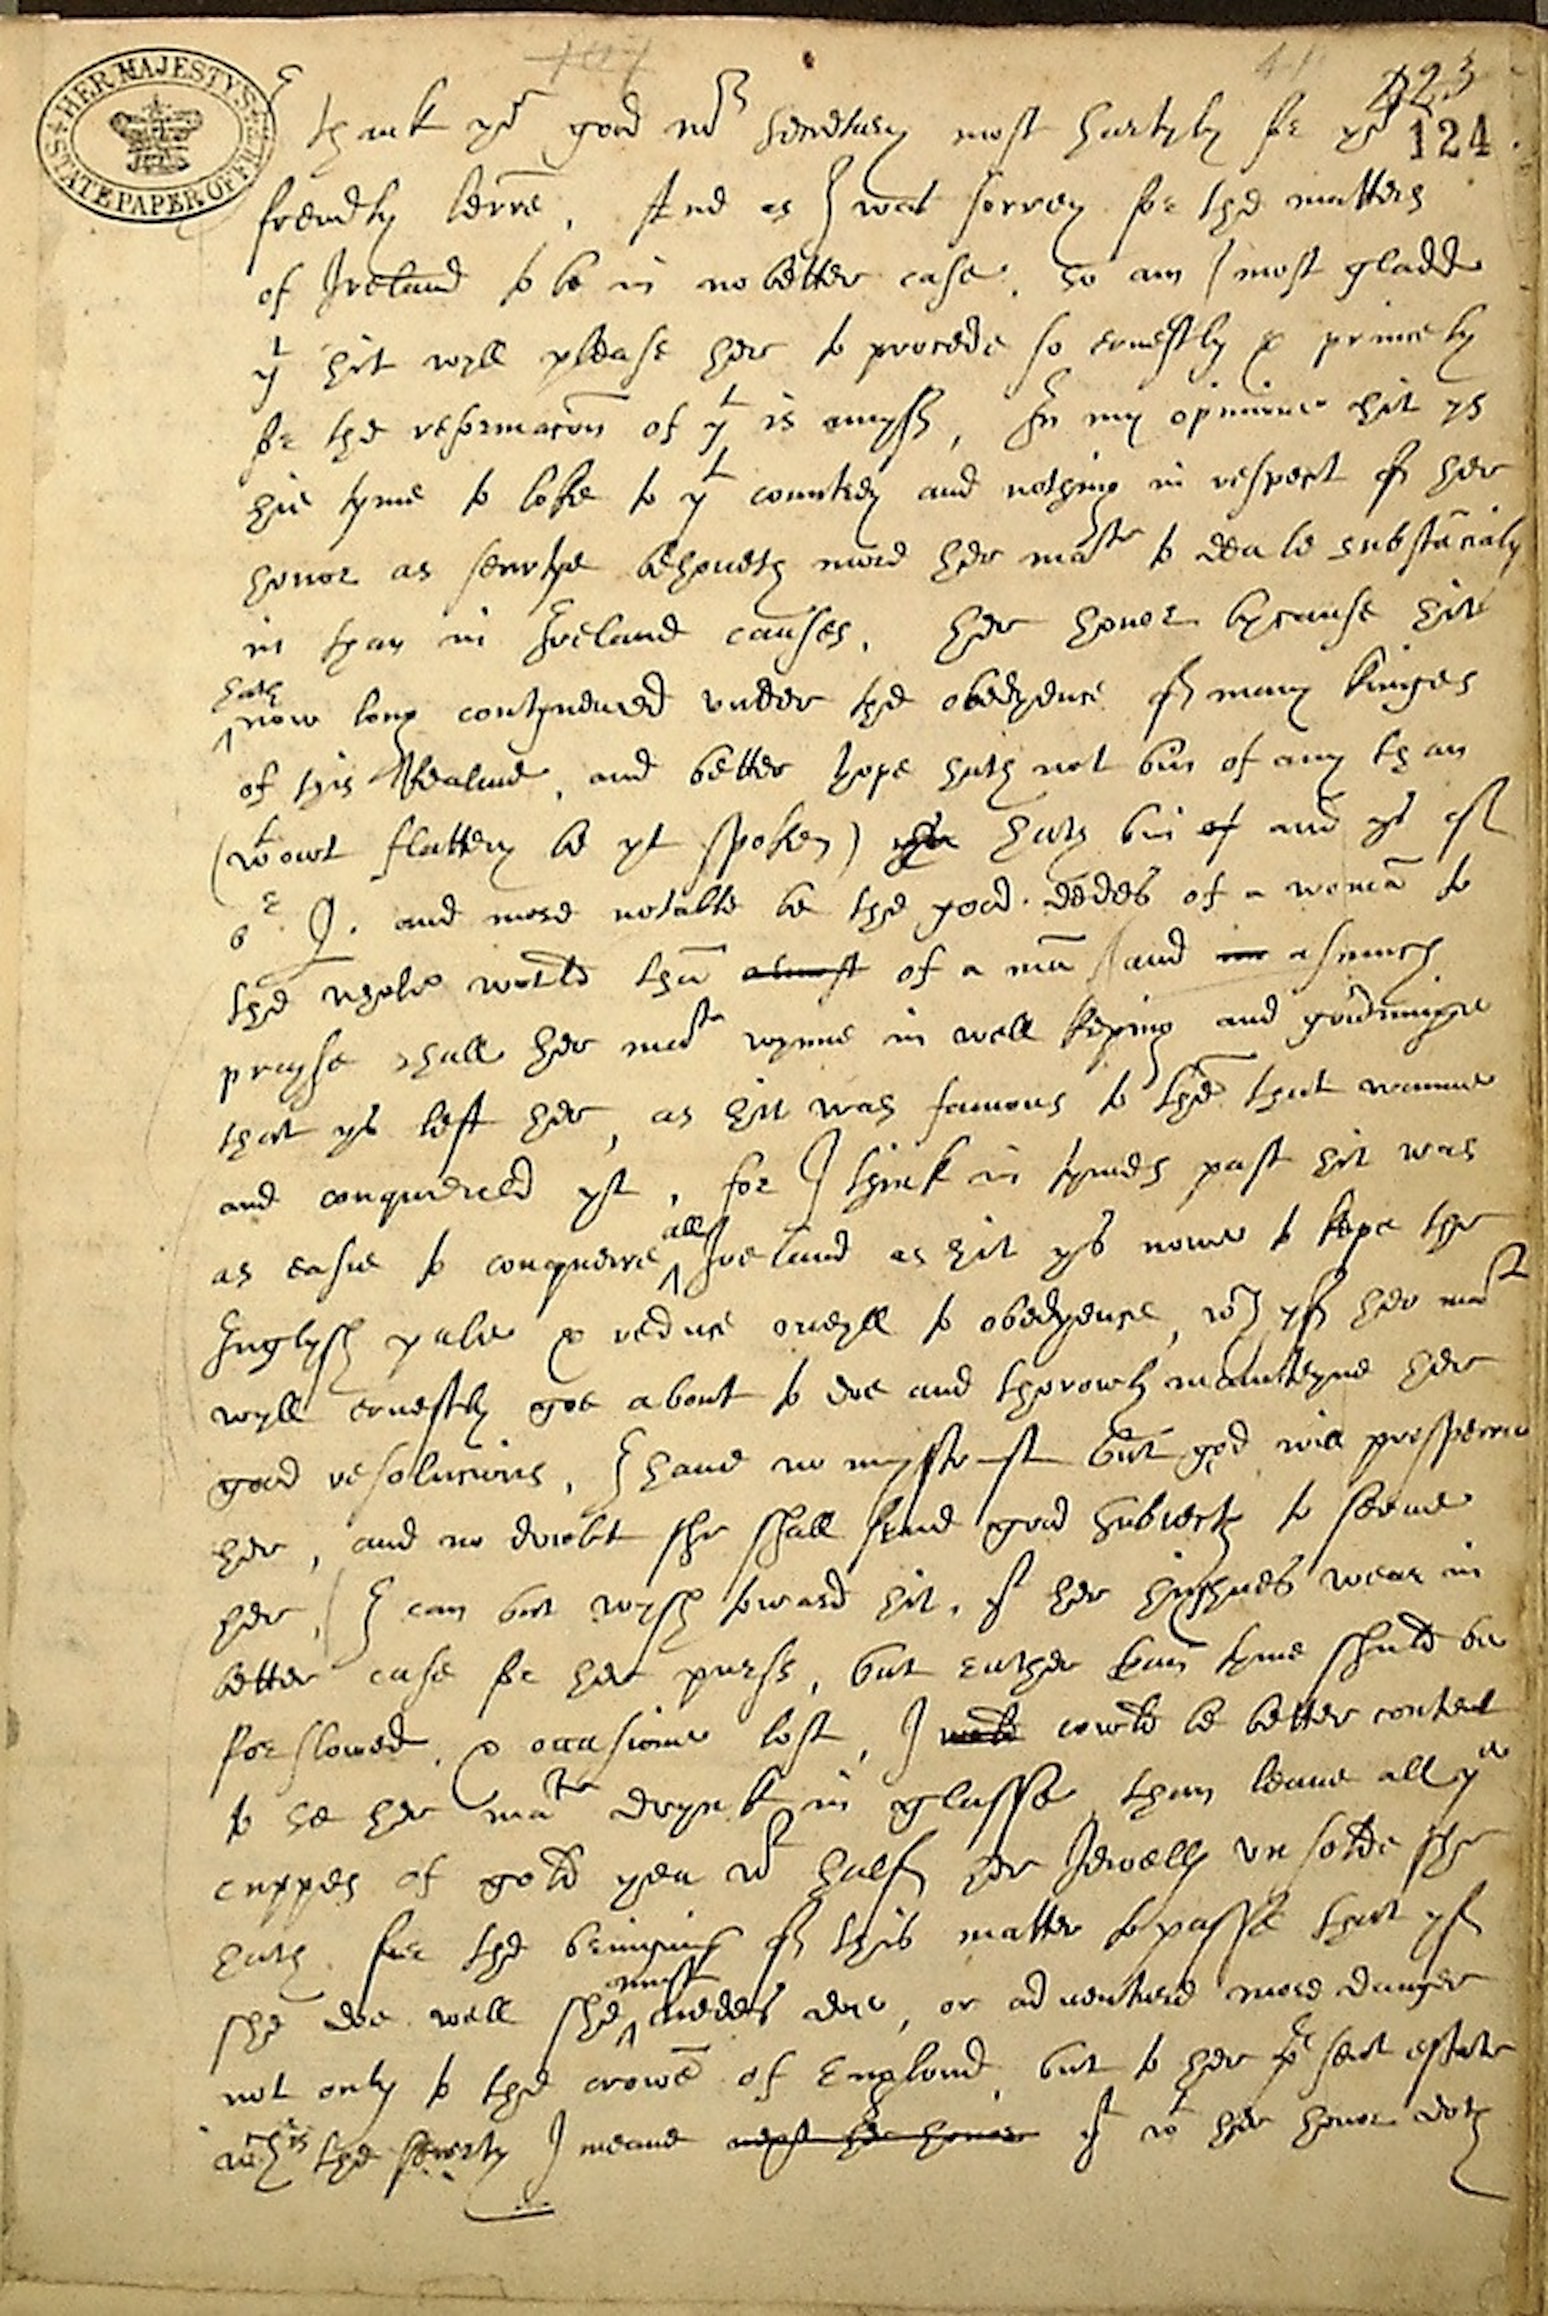 HER MAJESTY'S STATE PAPER OFFICE
107
41
123
124
I thank yor good mr Secretary most hartyly for yor
frendly lettre. And as I was sorrey for the matters
of Ireland to be in no better case, so am I most gladde
yt hit wyll please her to procede so ernestly & princely
for the reformacon of yt is amyss, In my opinione hit ys
hie tyme to loke to yt countrey and nothing in respect of her
honor as seurtye behoueth more her matie to deale substancialy
in than in Ireland causes. Her honor bycause hit
hath
now long contynewed vnder the obedyence of many kinges
of this Realme, and better hope hath not bin of any than
(wtowt flattery be yt spoken) hath bin of and ys of
or Q. and more notable be the good dedes of a woman to
the whole world than almost of a man / and in asmuch
prayse shall her matie wynne in well keping and governinge
that ys left her, as hit was famous to them that wanne
and conquered yt, for I think in tymes past hit was
all
as easie to conquere Ireland as hit ys nowe to kepe the
Inglysh pale & reduce oneyll to obedyence, wch yf her matie
wyll ernestly goe about to doe and thorowly mainteyne her
good resolucions, I haue no mystrust but god will prosper
her, and no doubt she shall fynd good subiects to serue
her, / I can but wysh toward hit, yf her highnes wear in
better case for her purse, but rather than tyme shuld be
forslowed, & occasione lost, I wold cowld be better content
to se her matie drynk in glasse than leaue all ye
cuppes of gold yea wt half her Jewells vnsolde she
hath for the bringing of this matter to passe that yf
must
she doe well she nedes doe, or aduenture more daunger
not only to the crowne of England, but to her present estate
wch is the seurty I meane next her honor yf wt her honor doth